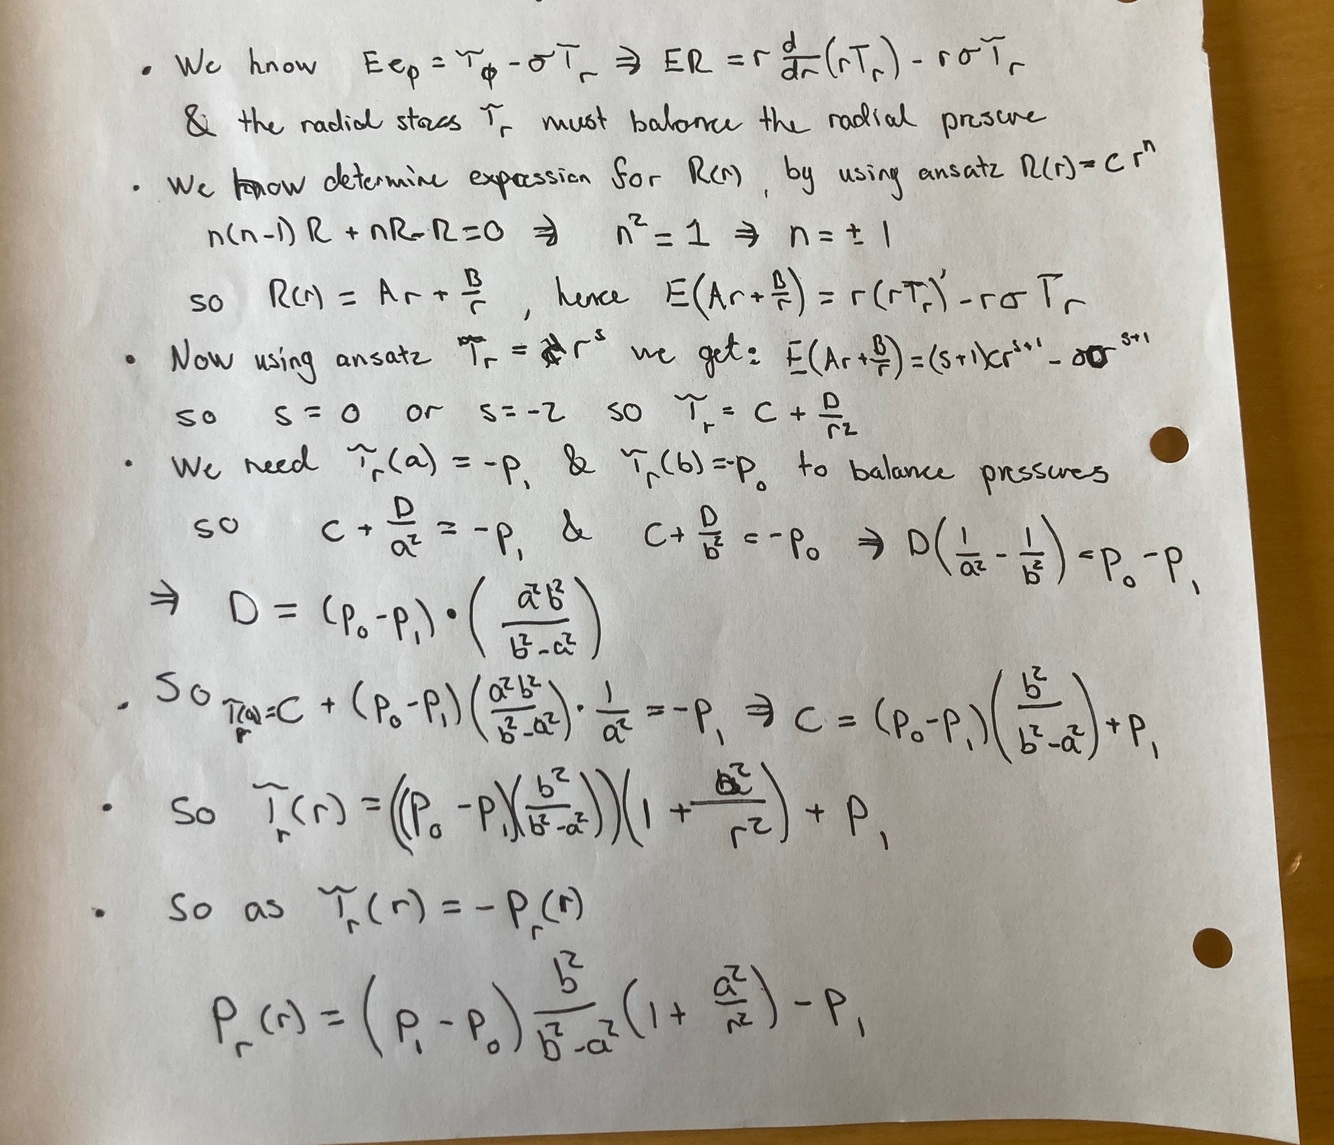 • We know Ee_φ = T_φ - σT_r ⇒ ER = r d/dr (rT_r) - rσT_r
& the radial stress T_r must balance the radial pressure
• We know determine expression for R(r), by using ansatz R(r) = c rⁿ
n(n-1) R + nR - R = 0 ⇒ n² = 1 ⇒ n = ± 1
so R(r) = Ar + B/r , hence E(Ar + B/r) = r(rT_r)' - rσT_r
• Now using ansatz T_r = r^s we get: E(Ar + B/r) = (s+1)cr^{s+1} - σcr^{s+1}
so s = 0 or s = -2 so T_r = C + D/r²
• We need T_r(a) = -P₁ & T_r(b) = -P₀ to balance pressures
so C + D/a² = -P₁ & C + D/b² = -P₀ ⇒ D(1/a² - 1/b²) = P₀ - P₁
⇒ D = (P₀ - P₁) · (a²b²/(b² - a²))
• So T_r(a) = C + (P₀ - P₁)(a²b²/(b² - a²)) · 1/a² = -P₁ ⇒ C = (P₀ - P₁)(b²/(b² - a²)) + P₁
• So T_r(r) = ((P₀ - P₁)(b²/(b² - a²)))(1 + a²/r²) + P₁
• So as T_r(r) = -P_r(r)
P_r(r) = (P₁ - P₀) b²/(b² - a²) (1 + a²/r²) - P₁